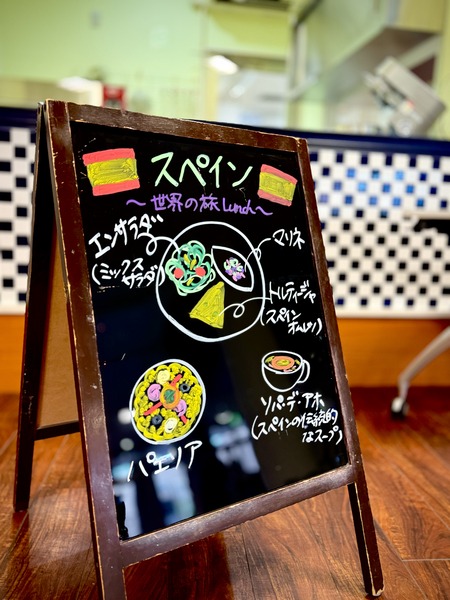 スペイン
～世界の旅Lunch～
エンサラダ
(ミックス
サラダ)
マリネ
トルティージャ
(スペイン
オムレツ)
パエリア
ソパ・デ・アホ
(スペインの伝統的
なスープ)